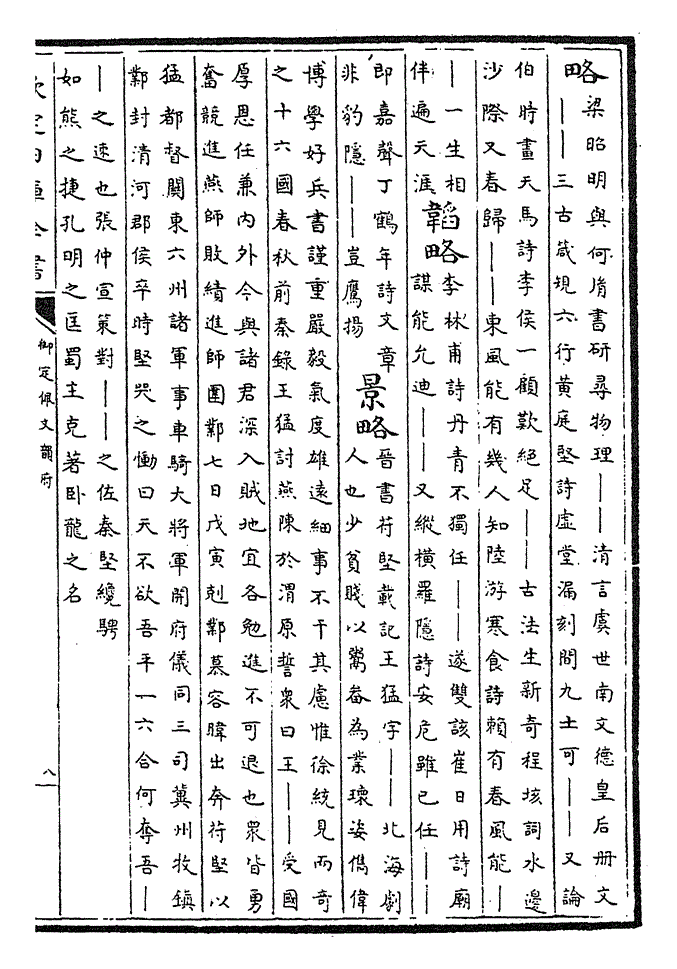 略
梁昭明與何胤書研尋物理——清言虞世南文德皇后册文
——三古箴規六行黃庭堅詩虛堂漏刻問九土可——又論
伯時畫天馬詩李侯一顧歎絕足——古法生新奇程垓詞水邊
沙際又春歸——東風能有幾人知陸游寒食詩賴有春風能—
—一生相
伴遍天涯
韜略
李林甫詩丹青不獨任——遂雙該崔日用詩廟
謀能允迪——又縱橫羅隱詩安危雖已任——
即嘉聲丁鶴年詩文章
非豹隱——豈鷹揚
景略
晉書苻堅載記王猛字——北海劇
人也少貧賤以鬻畚為業瓌姿儁偉
博學好兵書謹重嚴毅氣度雄遠細事不干其慮惟徐統見而奇
之十六國春秋前秦錄王猛討燕陳於渭原誓衆曰王——受國
厚恩任兼內外今與諸君深入賊地宜各勉進不可退也眾皆勇
奮競進燕師敗績進師圍鄴七日戊寅剋鄴慕容暐出奔苻堅以
猛都督關東六州諸軍事車騎大將軍開府儀同三司冀州牧鎮
鄴封清河郡侯卒時堅哭之慟曰天不欲吾平一六合何奪吾—
—之速也張仲宣策對——之佐秦堅纔騁
如熊之捷孔明之匡蜀主克著臥龍之名
欽定四庫全書
御定佩文韻府
八